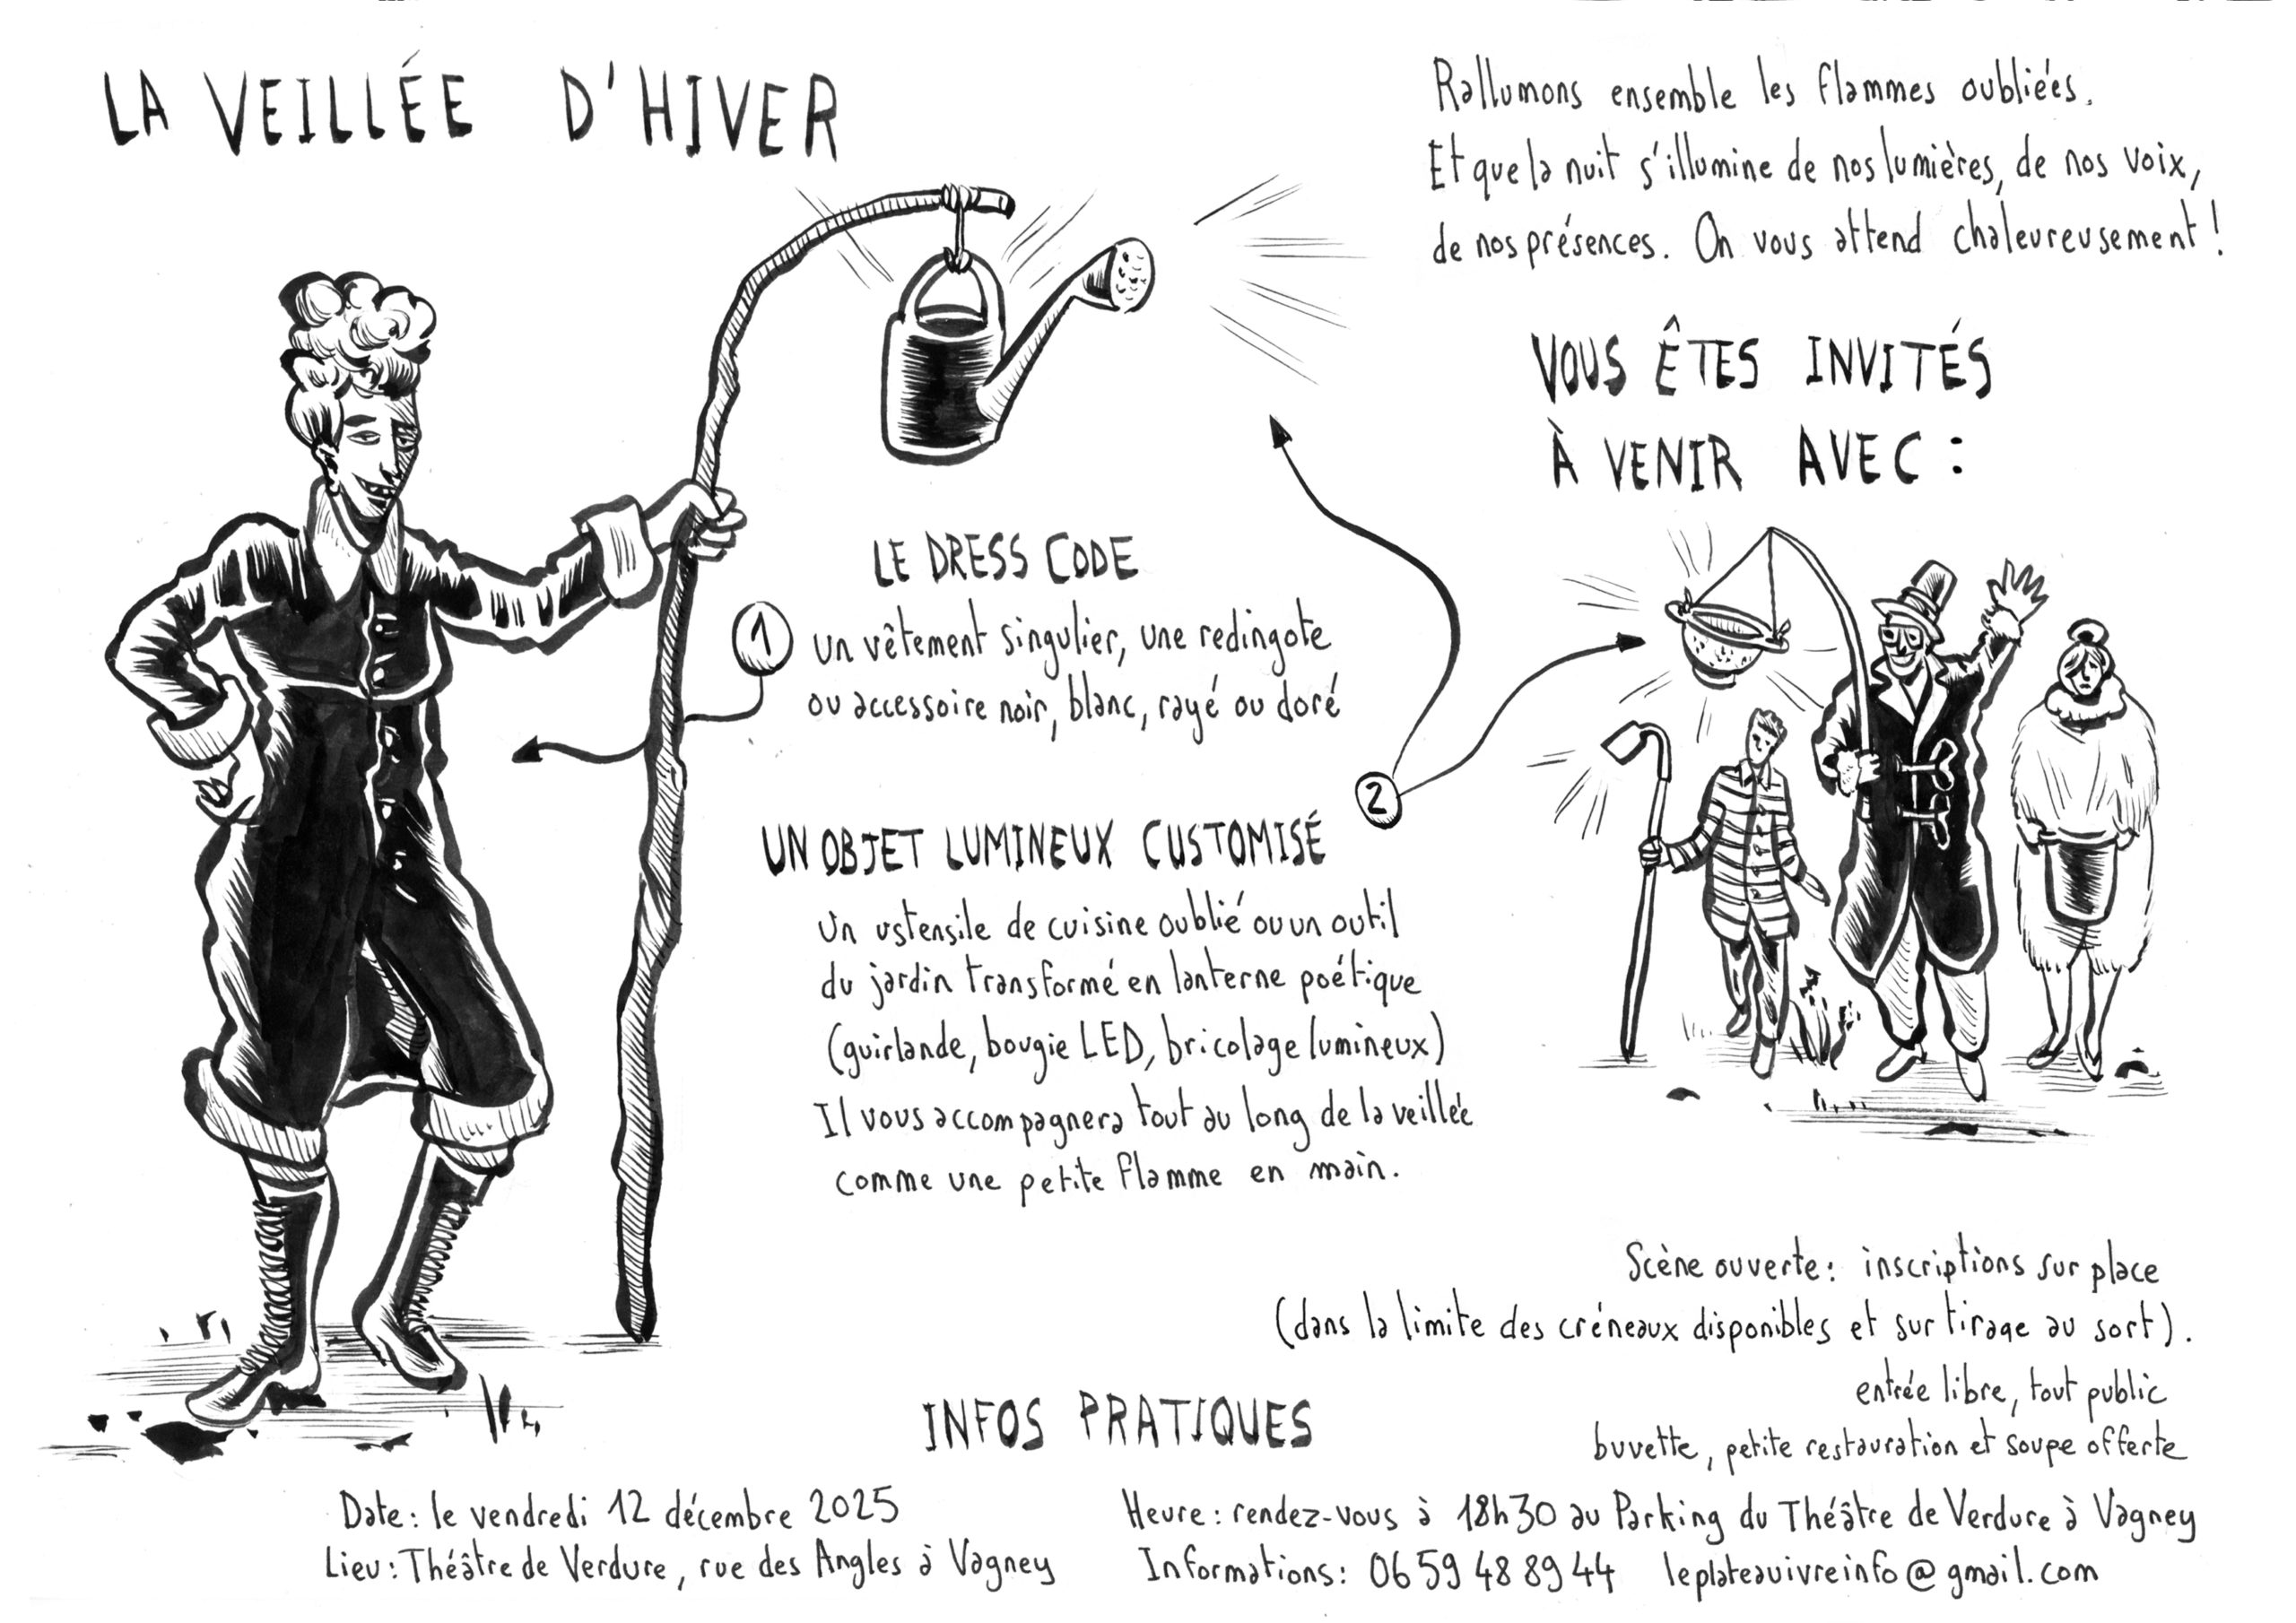 LA VEILLÉE D'HIVER
Rallumons ensemble les flammes oubliées.
Et que la nuit s'illumine de nos lumières, de nos voix,
de nos présences. On vous attend chaleureusement !
VOUS ÊTES INVITÉS
À VENIR AVEC :
LE DRESS CODE
1 un vêtement singulier, une redingote
ou accessoire noir, blanc, rayé ou doré
2
UN OBJET LUMINEUX CUSTOMISÉ
Un ustensile de cuisine oublié ou un outil
du jardin transformé en lanterne poétique
(guirlande, bougie LED, bricolage lumineux)
Il vous accompagnera tout au long de la veillée
comme une petite flamme en main.
Scène ouverte : inscriptions sur place
(dans la limite des créneaux disponibles et sur tirage au sort).
entrée libre, tout public
buvette, petite restauration et soupe offerte
INFOS PRATIQUES
Date : le vendredi 12 décembre 2025
Lieu : Théâtre de Verdure, rue des Angles à Vagney
Heure : rendez-vous à 18h30 au Parking du Théâtre de Verdure à Vagney
Informations : 06 59 48 89 44 leplateauivreinfo@gmail.com